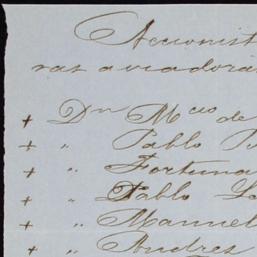 Accionist
ras aviadora
+ Dn Mcos de
+ " Pablo
+ " Fortuna
+ " Pablo
+ " Manuel
+ " Andres